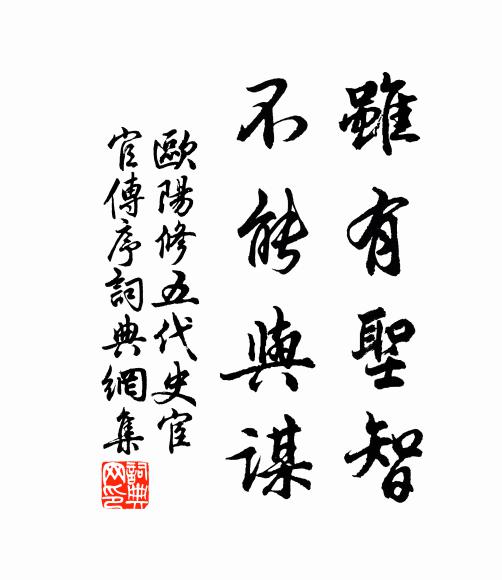 雖有聖智
不能與謀
歐陽修五代史宦
官傳序詞典網集
詞典
网印